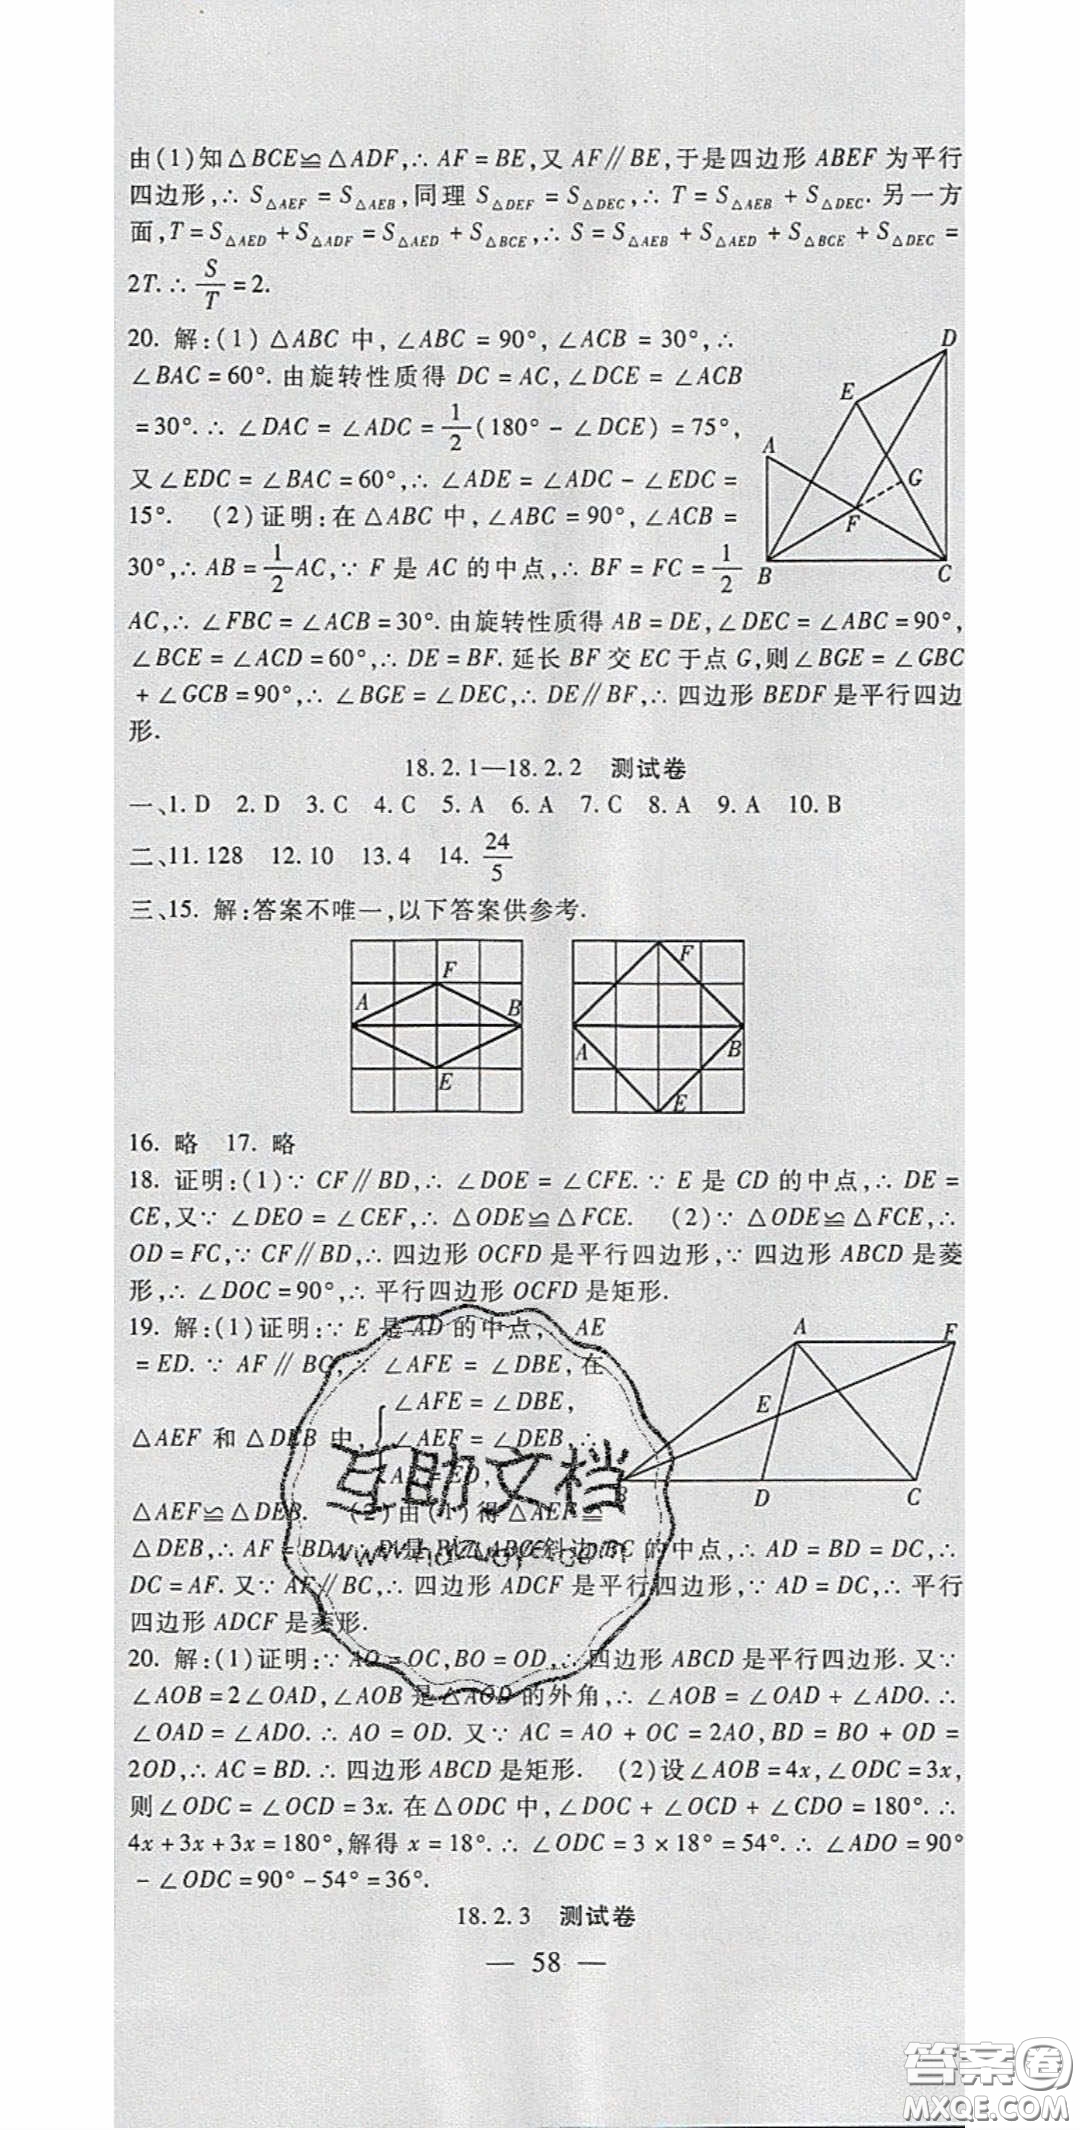 由(1)知△BCE≌△ADF,∴ AF = BE,又 AF∥BE,于是四边形 ABEF 为平行
四边形,∴ S△AEF = S△AEB,同理 S△DEF = S△DEC,∴ T = S△AEB + S△DEC. 另一方
面,T = S△AED + S△ADF = S△AED + S△BCE,∴ S = S△AEB + S△AED + S△BCE + S△DEC =
2T.∴ S/T = 2.
20. 解:(1) △ABC 中, ∠ABC = 90°, ∠ACB = 30°,∴
∠BAC = 60°. 由旋转性质得 DC = AC, ∠DCE = ∠ACB
= 30°.∴ ∠DAC = ∠ADC = 1/2 (180° - ∠DCE) = 75°,
又∠EDC = ∠BAC = 60°,∴ ∠ADE = ∠ADC - ∠EDC =
15°. (2)证明:在△ABC 中,∠ABC = 90°,∠ACB =
30°,∴ AB = 1/2 AC,∵ F 是 AC 的中点,∴ BF = FC = 1/2
AC,∴ ∠FBC = ∠ACB = 30°. 由旋转性质得 AB = DE,∠DEC = ∠ABC = 90°,
∠BCE = ∠ACD = 60°,∴ DE = BF. 延长 BF 交 EC 于点 G,则∠BGE = ∠GBC
+ ∠GCB = 90°,∴ ∠BGE = ∠DEC,∴ DE∥BF,∴ 四边形 BEDF 是平行四边
形.
D
E
A
G
F
B
C
18.2.1—18.2.2 测试卷
一、1. D 2. D 3. C 4. C 5. A 6. A 7. C 8. A 9. A 10. B
二、11. 128 12. 10 13. 4 14. 24/5
三、15. 解:答案不唯一,以下答案供参考.
F
A
B
E
F
A
B
E
16. 略 17. 略
18. 证明:(1)∵ CF∥BD,∴ ∠DOE = ∠CFE.∵ E 是 CD 的中点,∴ DE =
CE,又∵ ∠DEO = ∠CEF,∴ △ODE≌△FCE. (2)∵ △ODE≌△FCE,∴
OD = FC,∵ CF∥BD,∴ 四边形 OCFD 是平行四边形,∵ 四边形 ABCD 是菱
形,∴ ∠DOC = 90°,∴ 平行四边形 OCFD 是矩形.
19. 解:(1)证明:∵ E 是 AD 的中点, AE
= ED.∵ AF∥BC,∴ ∠AFE = ∠DBE, 在
△AEF 和 △DEB 中,{∠AFE = ∠DBE,
∠AEF = ∠DEB,∴
AE = ED,
△AEF≌△DEB. (2)由(1)得△AEF≌
△DEB,∴ AF = BD,∵ D 是 Rt△ABC 斜边 BC 的中点,∴ AD = BD = DC,∴
DC = AF. 又∵ AF∥BC,∴ 四边形 ADCF 是平行四边形,∵ AD = DC,∴ 平行
四边形 ADCF 是菱形.
A
F
E
B
D
C
20. 解:(1)证明:∵ AO = OC,BO = OD,∴ 四边形 ABCD 是平行四边形. 又∵
∠AOB = 2∠OAD,∠AOB 是△AOD 的外角,∴ ∠AOB = ∠OAD + ∠ADO.∴
∠OAD = ∠ADO.∴ AO = OD. 又∵ AC = AO + OC = 2AO,BD = BO + OD =
2OD,∴ AC = BD.∴ 四边形 ABCD 是矩形. (2)设∠AOB = 4x,∠ODC = 3x,
则∠ODC = ∠OCD = 3x. 在△ODC 中,∠DOC + ∠OCD + ∠CDO = 180°.∴
4x + 3x + 3x = 180°,解得 x = 18°.∴ ∠ODC = 3 × 18° = 54°.∴ ∠ADO = 90°
- ∠ODC = 90° - 54° = 36°.
18.2.3 测试卷
— 58 —
互助文档
答案卷
MXQE.COM